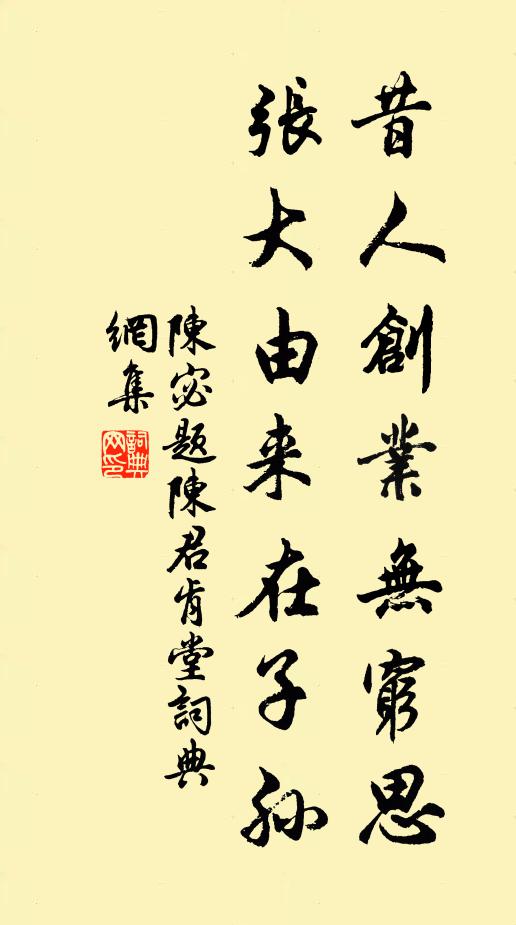 昔人創業無窮思
張大由来在子孫
陳宓題陳君肯堂詞典
網集
詞典網印